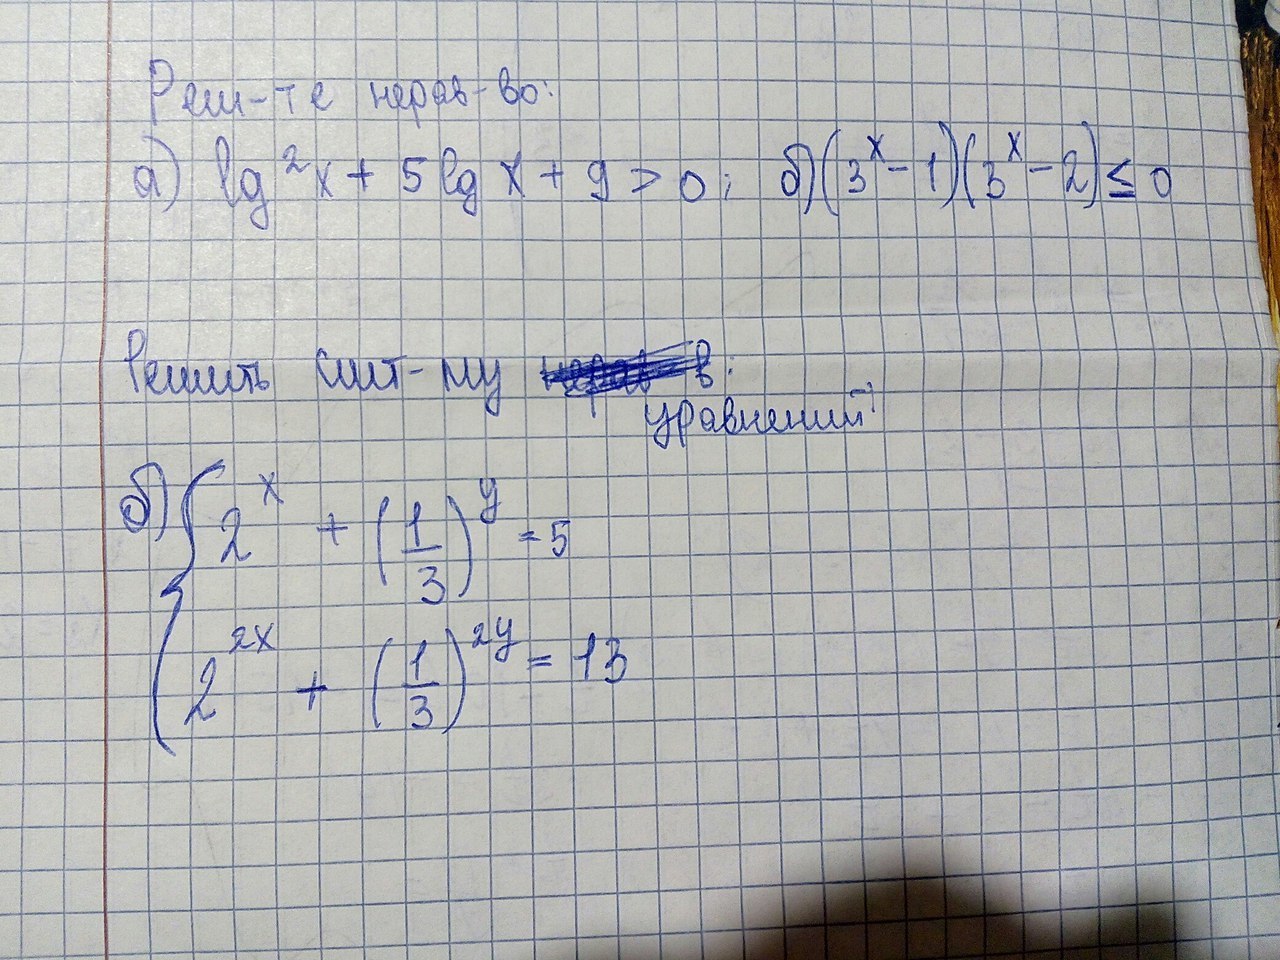 Реш-те нерав-во:
а) lg²x + 5lg x + 9 > 0; б) (3ˣ - 1)(3ˣ - 2) ≤ 0
Решить сист-му нерав-в:
уравнений:
б) { 2ˣ + (1/3)ʸ = 5
2²ˣ + (1/3)²ʸ = 13